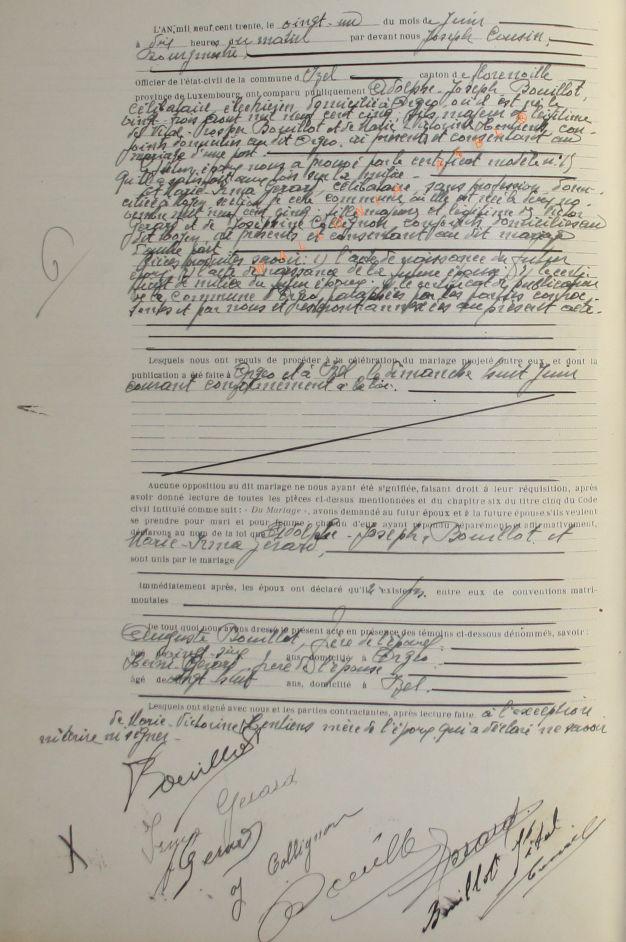 L'AN, mil neuf cent trente, le vingt-un du mois de Juin
à dix heures du matin par devant nous Joseph Cousin,
Bourgmestre,
Officier de l'état-civil de la commune d'Izel canton de Florenville
province de Luxembourg, ont comparu publiquement Adolphe-Joseph Bouillot,
célibataire, domicilié à Orgeo où il est né le
vingt-trois mil neuf cent cinq, fils majeur et légitime
de Vital-Prosper Bouillot et de Marie-Victorine con-
joints domiciliés au dit Orgeo, ici présents et consentant au
mariage d'une part.
nous a prouvé par le certificat modèle n°
qu'il
Et Marie-Irma Gérard, célibataire, sans profession, domi-
ciliée à section de cette commune où elle est née le
mil neuf cent cinq, fille majeure et légitime de Victor
Gérard et de Joséphine Collignon conjoints domiciliés au
dit ici présents et consentant au dit mariage
d'autre part.
Pièces produites savoir: 1) l'acte de naissance du futur
époux; 2) l'acte de naissance de la future épouse; 3) le certi-
ficat de milice du futur époux; 4) le certificat de publication
de la Commune d'Orgeo, paraphées par les parties contrac-
tantes et par nous et resteront annexées au présent acte.
Lesquels nous ont requis de procéder à la célébration du mariage projeté entre eux, et dont la
publication a été faite à Orgeo et à Izel, le dimanche huit Juin
courant conformément à la loi.
Aucune opposition au dit mariage ne nous ayant été signifiée, faisant droit à leur réquisition, après
avoir donné lecture de toutes les pièces ci-dessus mentionnées et du chapitre six du titre cinq du Code
civil intitulé comme suit: « Du Mariage », avons demandé au futur époux et à la future épouse s'ils veulent
se prendre pour mari et pour femme; chacun d'eux ayant répondu séparément et affirmativement,
déclarons au nom de la loi que Adolphe-Joseph Bouillot et
Marie-Irma Gérard,
sont unis par le mariage
Immédiatement après, les époux ont déclaré qu'il existe pas entre eux de conventions matri-
moniales
De tout quoi nous avons dressé le présent acte en présence des témoins ci-dessous dénommés, savoir:
Auguste Bouillot, frère de l'époux,
âgé vingt-six ans, domicilié à Orgeo
Gérard, frère de l'épouse
âgé de vingt-huit ans, domicilié à Izel.
Lesquels ont signé avec nous et les parties contractantes, après lecture faite, à l'exception
de Marie-Victorine mère de l'époux qui a déclaré ne savoir
ni écrire ni signer.
Bouillot
Irma Gerard
Gerard
J Collignon
Bouillot
Gérard
Bouillot Vital
Cousin